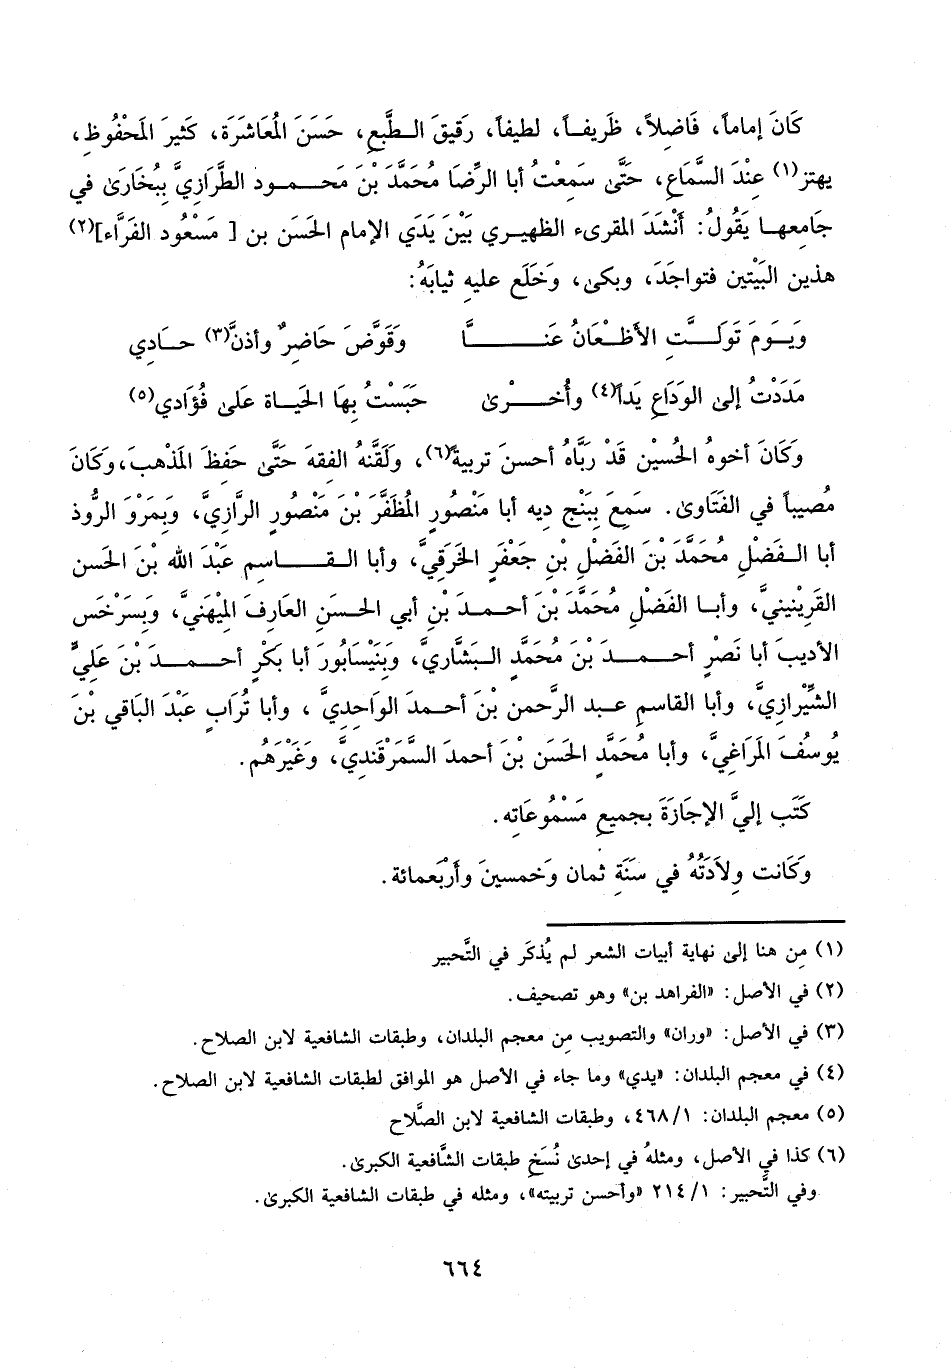 كَانَ إماماً، فَاضِلاً، ظَرِيفاً، لطيفاً، رَقِيقَ الطَّبعِ، حَسَنَ المُعَاشَرَة، كَثيرَ المَحْفُوظِ،
يهتز(١) عِنْدَ السَّمَاعِ، حَتَّى سَمِعْتُ أبا الرِّضَا مُحَمَّدَ بْنَ مَحمود الطَّرَازِيَّ بِبُخَارَىٰ في
جَامِعِها يَقُولُ: أَنْشَدَ المقرىء الظهيري بَيْنَ يَدَي الإمام الحَسَن بن [ مَسْعُود الفَرَّاء](٢)
هذين البَيْتَين فتواجَدَ، وبكى، وَخَلَع عليهِ ثيابَهُ:
وَيَومَ تَوَلَّتِ الأَظْعَانُ عَنَّا وَقَوَّضَ حَاضِرٌ وأذنَّ(٣) حادِي
مَدَدْتُ إلى الوَدَاعِ يَداً(٤) وأُخْرىٰ حَبَسْتُ بِهَا الحَيَاة عَلىٰ فُؤَادي(٥)
وَكَانَ أخوهُ الحُسَيْن قَدْ رَبَّاهُ أحسنَ تربيةً(٦)، ولَقَّنَهُ الفقهَ حَتَّى حَفِظَ المَذْهبَ، وكَانَ
مُصيباً في الفَتَاوىٰ. سَمِعَ بِبَنْج ديه أبا مَنْصُورٍ المُظَفَّرَ بْنَ مَنْصُورٍ الرَّازِيَّ، وَبِمَرْوَ الرُّوذ
أبا الفَضْلِ مُحَمَّدَ بْنَ الفَضْلِ بْنِ جَعْفَرٍ الخَرَقِيَّ، وأبا القَاسِم عَبْدَ الله بْنَ الحَسن
القَرِينِينيَّ، وأبا الفَضْلِ مُحَمَّدَ بْنَ أحمدَ بْنِ أبي الحسَنِ العارِفَ المِيْهَنيَّ، وَبِسَرْخَس
الأديبَ أبا نَصْرٍ أحمدَ بْنَ مُحَمَّدٍ البَشَّاريَّ، وبِنَيْسَابُورَ أبا بَكْرٍ أحمدَ بْنَ عَلِيٍّ
الشِّيْرازِيَّ، وأبا القَاسمِ عبد الرَّحمن بْنَ أحمدَ الوَاحِديَّ ، وأبا تُرَابٍ عَبْدَ البَاقي بْنَ
يُوسُفَ المَرَاغيَّ، وأبا مُحَمَّدٍ الحَسَن بْنَ أحمدَ السَّمَرْقَنديَّ، وَغَيْرَهُم.
كَتَب إليَّ الإجَازَةَ بجميعِ مَسْمُوعَاتِه.
وَكَانت وِلاَدَتُهُ في سنَةِ ثمان وَخمسينَ وأَرْبَعمائة.
(١) مِن هنا إلىٰ نهاية أبيات الشعر لم يُذكَر في التَّحبير
(٢) في الأصل: «الفراهد بن» وهو تصحيف.
(٣) في الأصل: «وران» والتصويب مِن معجم البلدان، وطبقات الشافعية لابن الصلاح.
(٤) في معجم البلدان: «يدي» وما جاء في الأصل هو الموافق لطبقات الشافعية لابن الصلاح.
(٥) معجم البلدان: ٤٦٨/١، وطبقات الشافعية لابن الصَّلاح
(٦) كذا في الأصل، ومثلهُ في إحدىٰ نُسَخِ طبقات الشَّافعية الكبرىٰ.
وفي التَّحبير: ٢١٤/١ «وأحسن تربيته»، ومثله في طبقات الشافعية الكبرىٰ.
٦٦٤